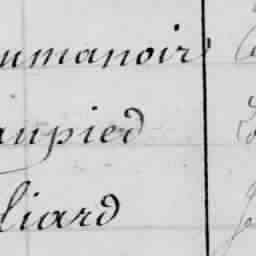 umanoir
aupied
liard